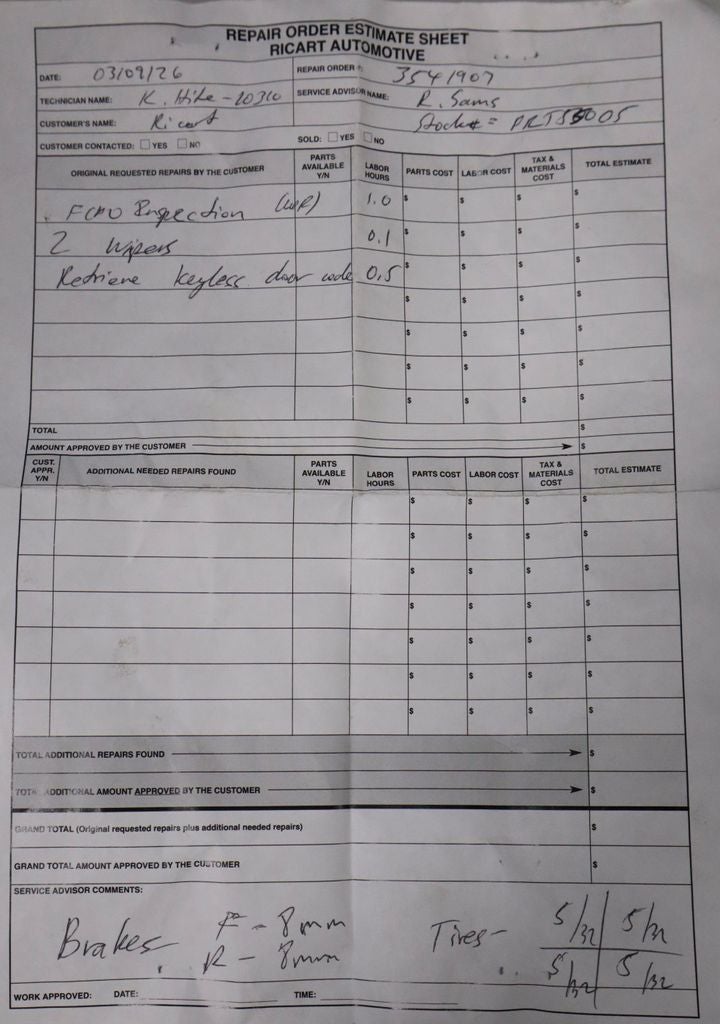 REPAIR ORDER ESTIMATE SHEET
RICART AUTOMOTIVE
DATE: 03/09/26 REPAIR ORDER #: 3541907
TECHNICIAN NAME: K. Hite - 10310 SERVICE ADVISOR NAME: R. Sams
CUSTOMER'S NAME: Ricart Stock# = PRT55005
CUSTOMER CONTACTED: YES NO SOLD: YES NO
ORIGINAL REQUESTED REPAIRS BY THE CUSTOMER PARTS AVAILABLE Y/N LABOR HOURS PARTS COST LABOR COST TAX & MATERIALS COST TOTAL ESTIMATE
Inspection 1.0 $ $ $ $
2 Wipers 0.1 $ $ $ $
Retrieve keyless door code 0.5 $ $ $ $
$ $ $ $
$ $ $ $
$ $ $ $
$ $ $ $
TOTAL $
AMOUNT APPROVED BY THE CUSTOMER $
CUST. APPR. Y/N ADDITIONAL NEEDED REPAIRS FOUND PARTS AVAILABLE Y/N LABOR HOURS PARTS COST LABOR COST TAX & MATERIALS COST TOTAL ESTIMATE
$ $ $ $
$ $ $ $
$ $ $ $
$ $ $ $
$ $ $ $
$ $ $ $
$ $ $ $
TOTAL ADDITIONAL REPAIRS FOUND $
TOTAL ADDITIONAL AMOUNT APPROVED BY THE CUSTOMER $
GRAND TOTAL (Original requested repairs plus additional needed repairs) $
GRAND TOTAL AMOUNT APPROVED BY THE CUSTOMER $
SERVICE ADVISOR COMMENTS:
Brakes F - 8mm Tires - 5/32 5/32
R - 8mm 5/32 5/32
WORK APPROVED: DATE: TIME: